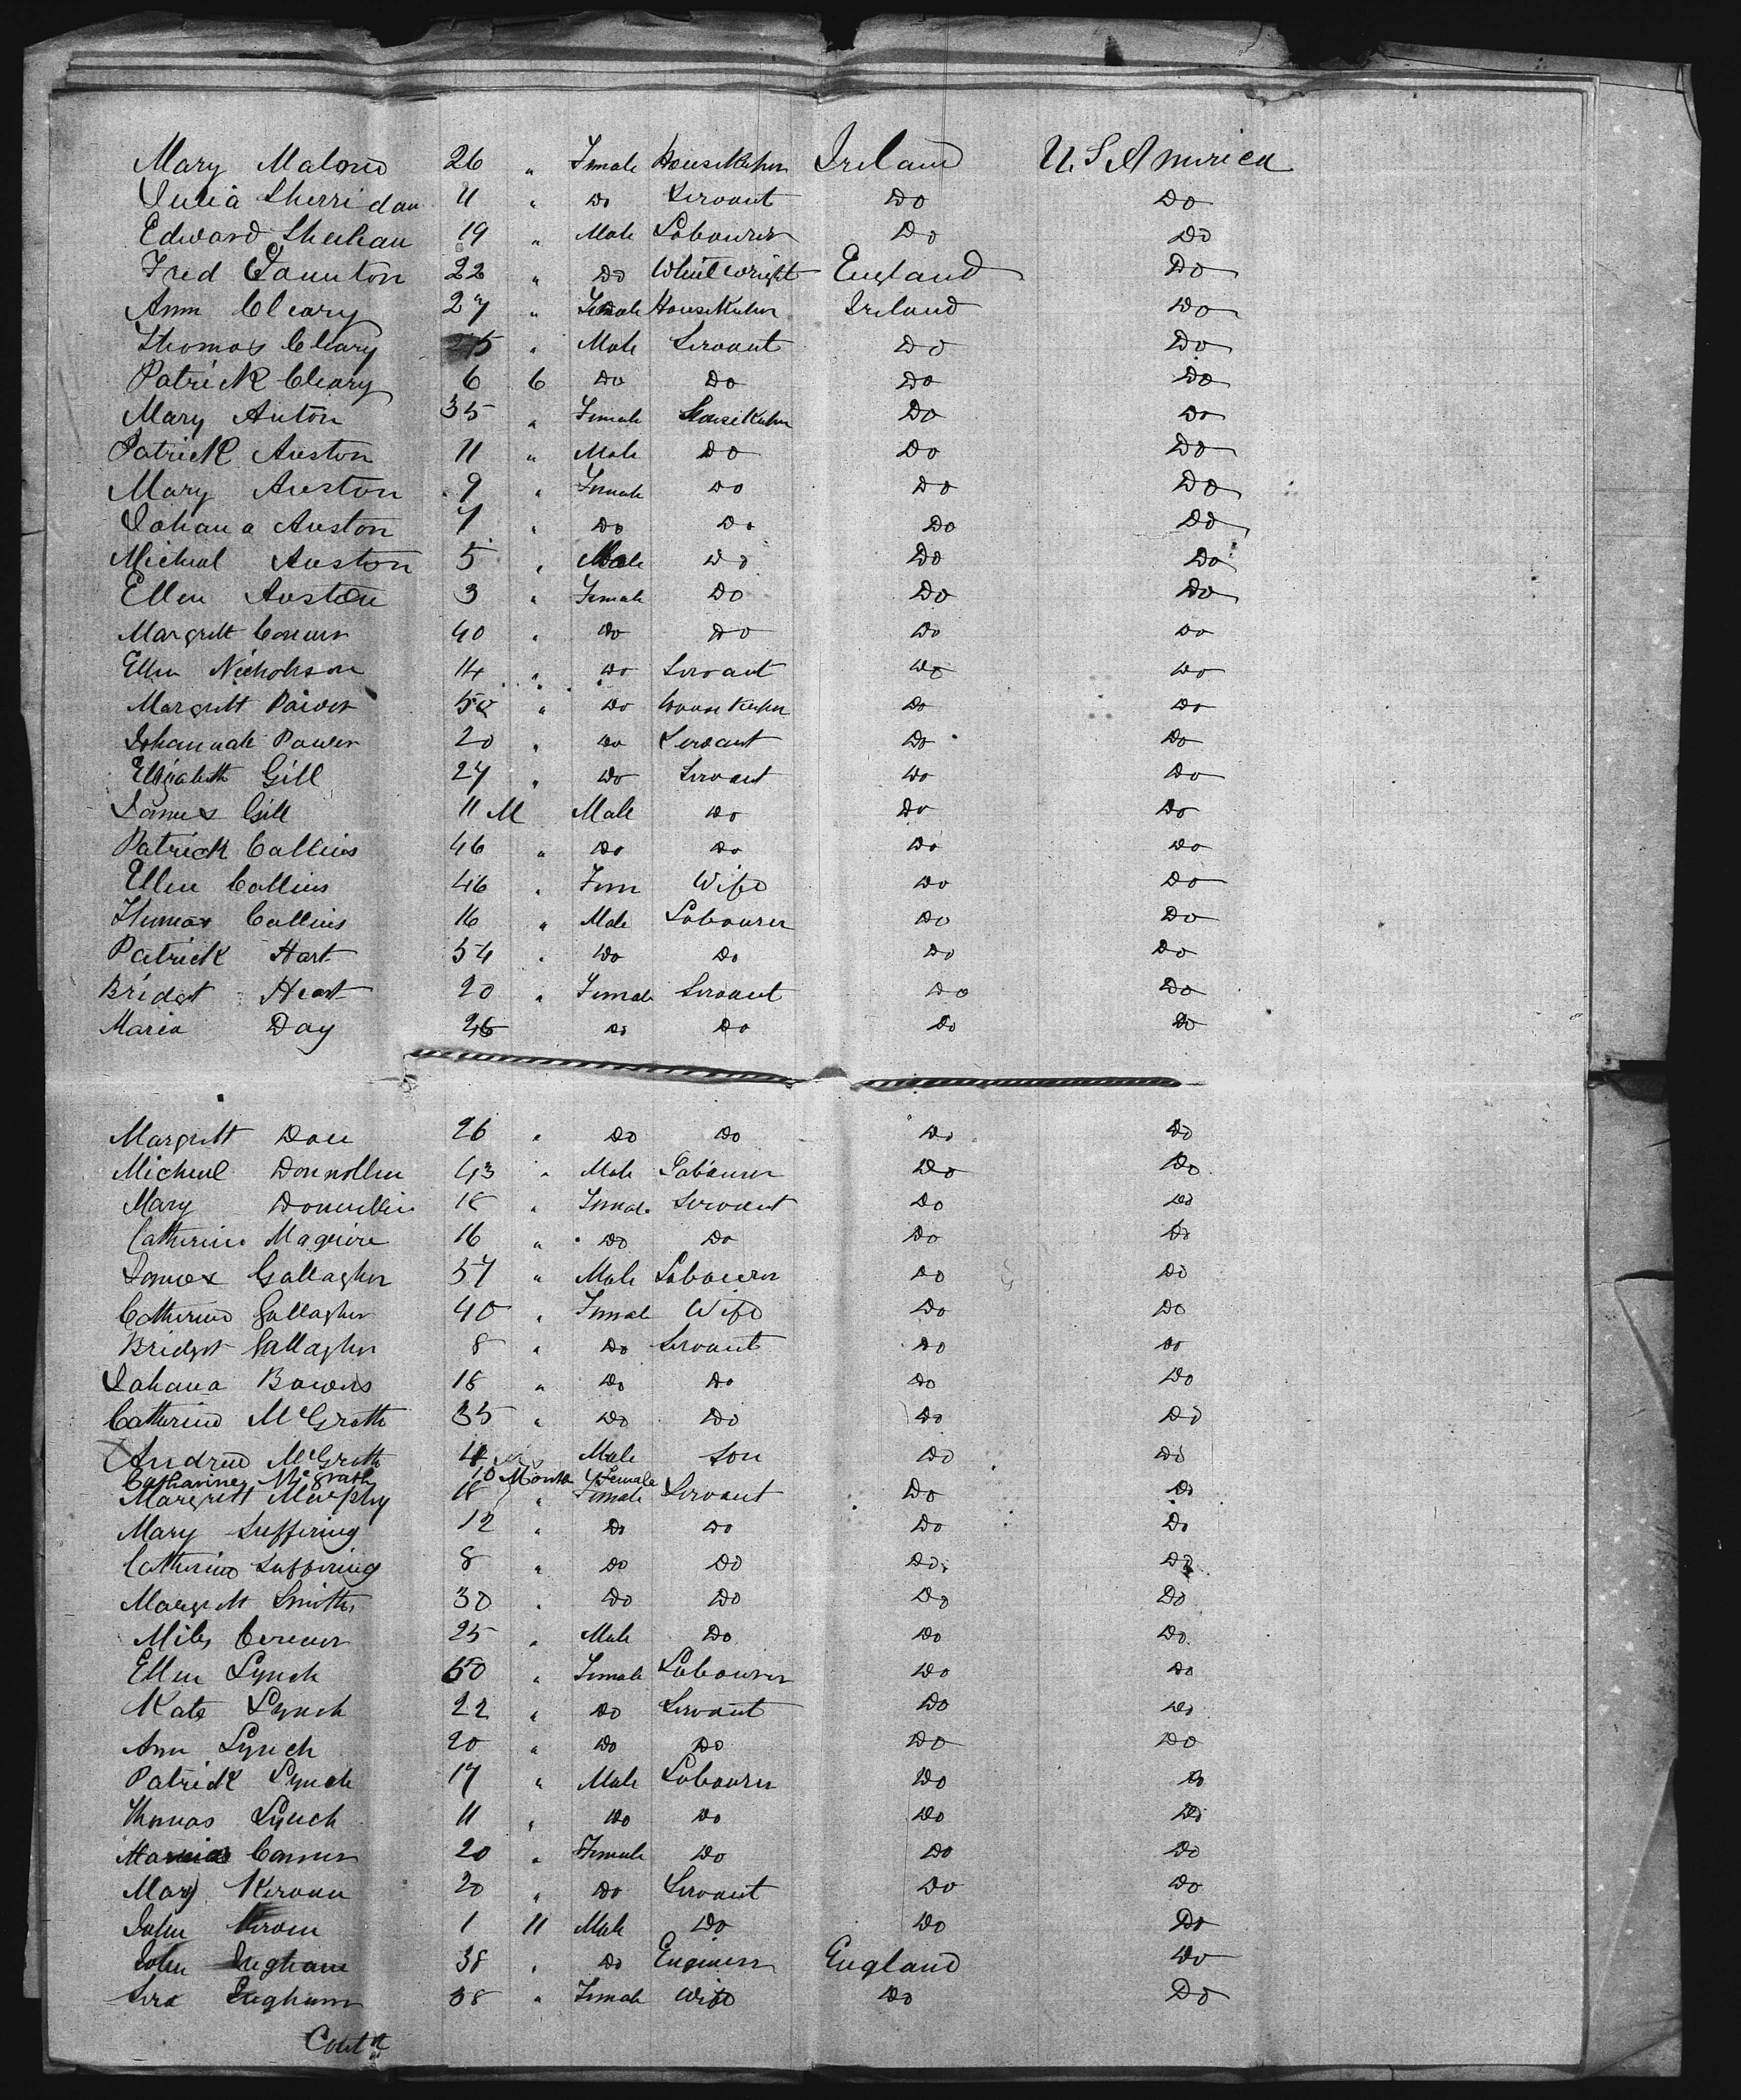 Mary Malone 26 " Female HouseKeeper Ireland U.S America
Julia Sherridan 11 " Do Servant Do Do
Edward Sheehan 19 " Male Labourer Do Do
Fred Taunton 22 " Do Wheelwright England Do
Ann Cleary 27 " Female HouseKeeper Ireland Do
Thomas Cleary " Male Servant Do Do
Patrick Cleary 6 6 Do Do Do Do
Mary Auton 35 " Female HouseKeeper Do Do
Patrick Auston 11 " Male Do Do Do
Mary Auston 9 " Female Do Do Do
Johana Auston 7 " Do Do Do Do
Micheal Auston 5 " Male Do Do Do
Ellen Auston 3 " Female Do Do Do
Margrett Conners 40 " Do Do Do Do
Ellen Nicholson 14 " Do Servant Do Do
Margrett Power " Do HouseKeeper Do Do
Johannah Power 20 " Do Servant Do Do
Elizabeth Gill 27 " Do Servant Do Do
James Gill 11 M Male Do Do Do
Patrick Collins 46 " Do Do Do Do
Ellen Collins 46 " Fem Wife Do Do
Thomas Collins 16 " Male Labourer Do Do
Patrick Hart 54 " Do Do Do Do
Bridget Heart 20 " Female Servant Do Do
Maria Day 26 Do Do Do Do
Margrett 26 " Do Do Do Do
Micheal Donnollen 43 " Male Labourer Do Do
Mary Donnollen 18 " Female Servant Do Do
Catherine Maguire 16 " Do Do Do Do
James Gallagher 57 " Male Labourer Do Do
Catherine Gallagher 40 " Female Wife Do Do
Bridget Gallagher 8 " Do Servant Do Do
Johana Bowers 18 " Do Do Do Do
Catherine McGrath 35 " Do Do Do Do
Andrew McGrath 4 Male Son Do Do
Catharine McGrath 10 Month Female
Margrett Murphy 18 " Female Servant Do Do
Mary Suffering 12 " Do Do Do Do
Catherine Suffering 8 " Do Do Do Do
Margrett Smith 30 " Do Do Do Do
Miles 25 " Male Do Do Do
Ellen Lynch 50 " Female Labourer Do Do
Kate Lynch 22 " Do Servant Do Do
Ann Lynch 20 " Do Do Do Do
Patrick Lynch 17 " Male Labourer Do Do
Thomas Lynch 11 " Do Do Do Do
Conners 20 " Female Do Do Do
Mary Kirwan 20 " Do Servant Do Do
John Kirwan 1 11 Male Do Do Do
John Ingham 38 " Do Engineer England Do
Sira Ingham 38 " Female Wife Do Do
Contd